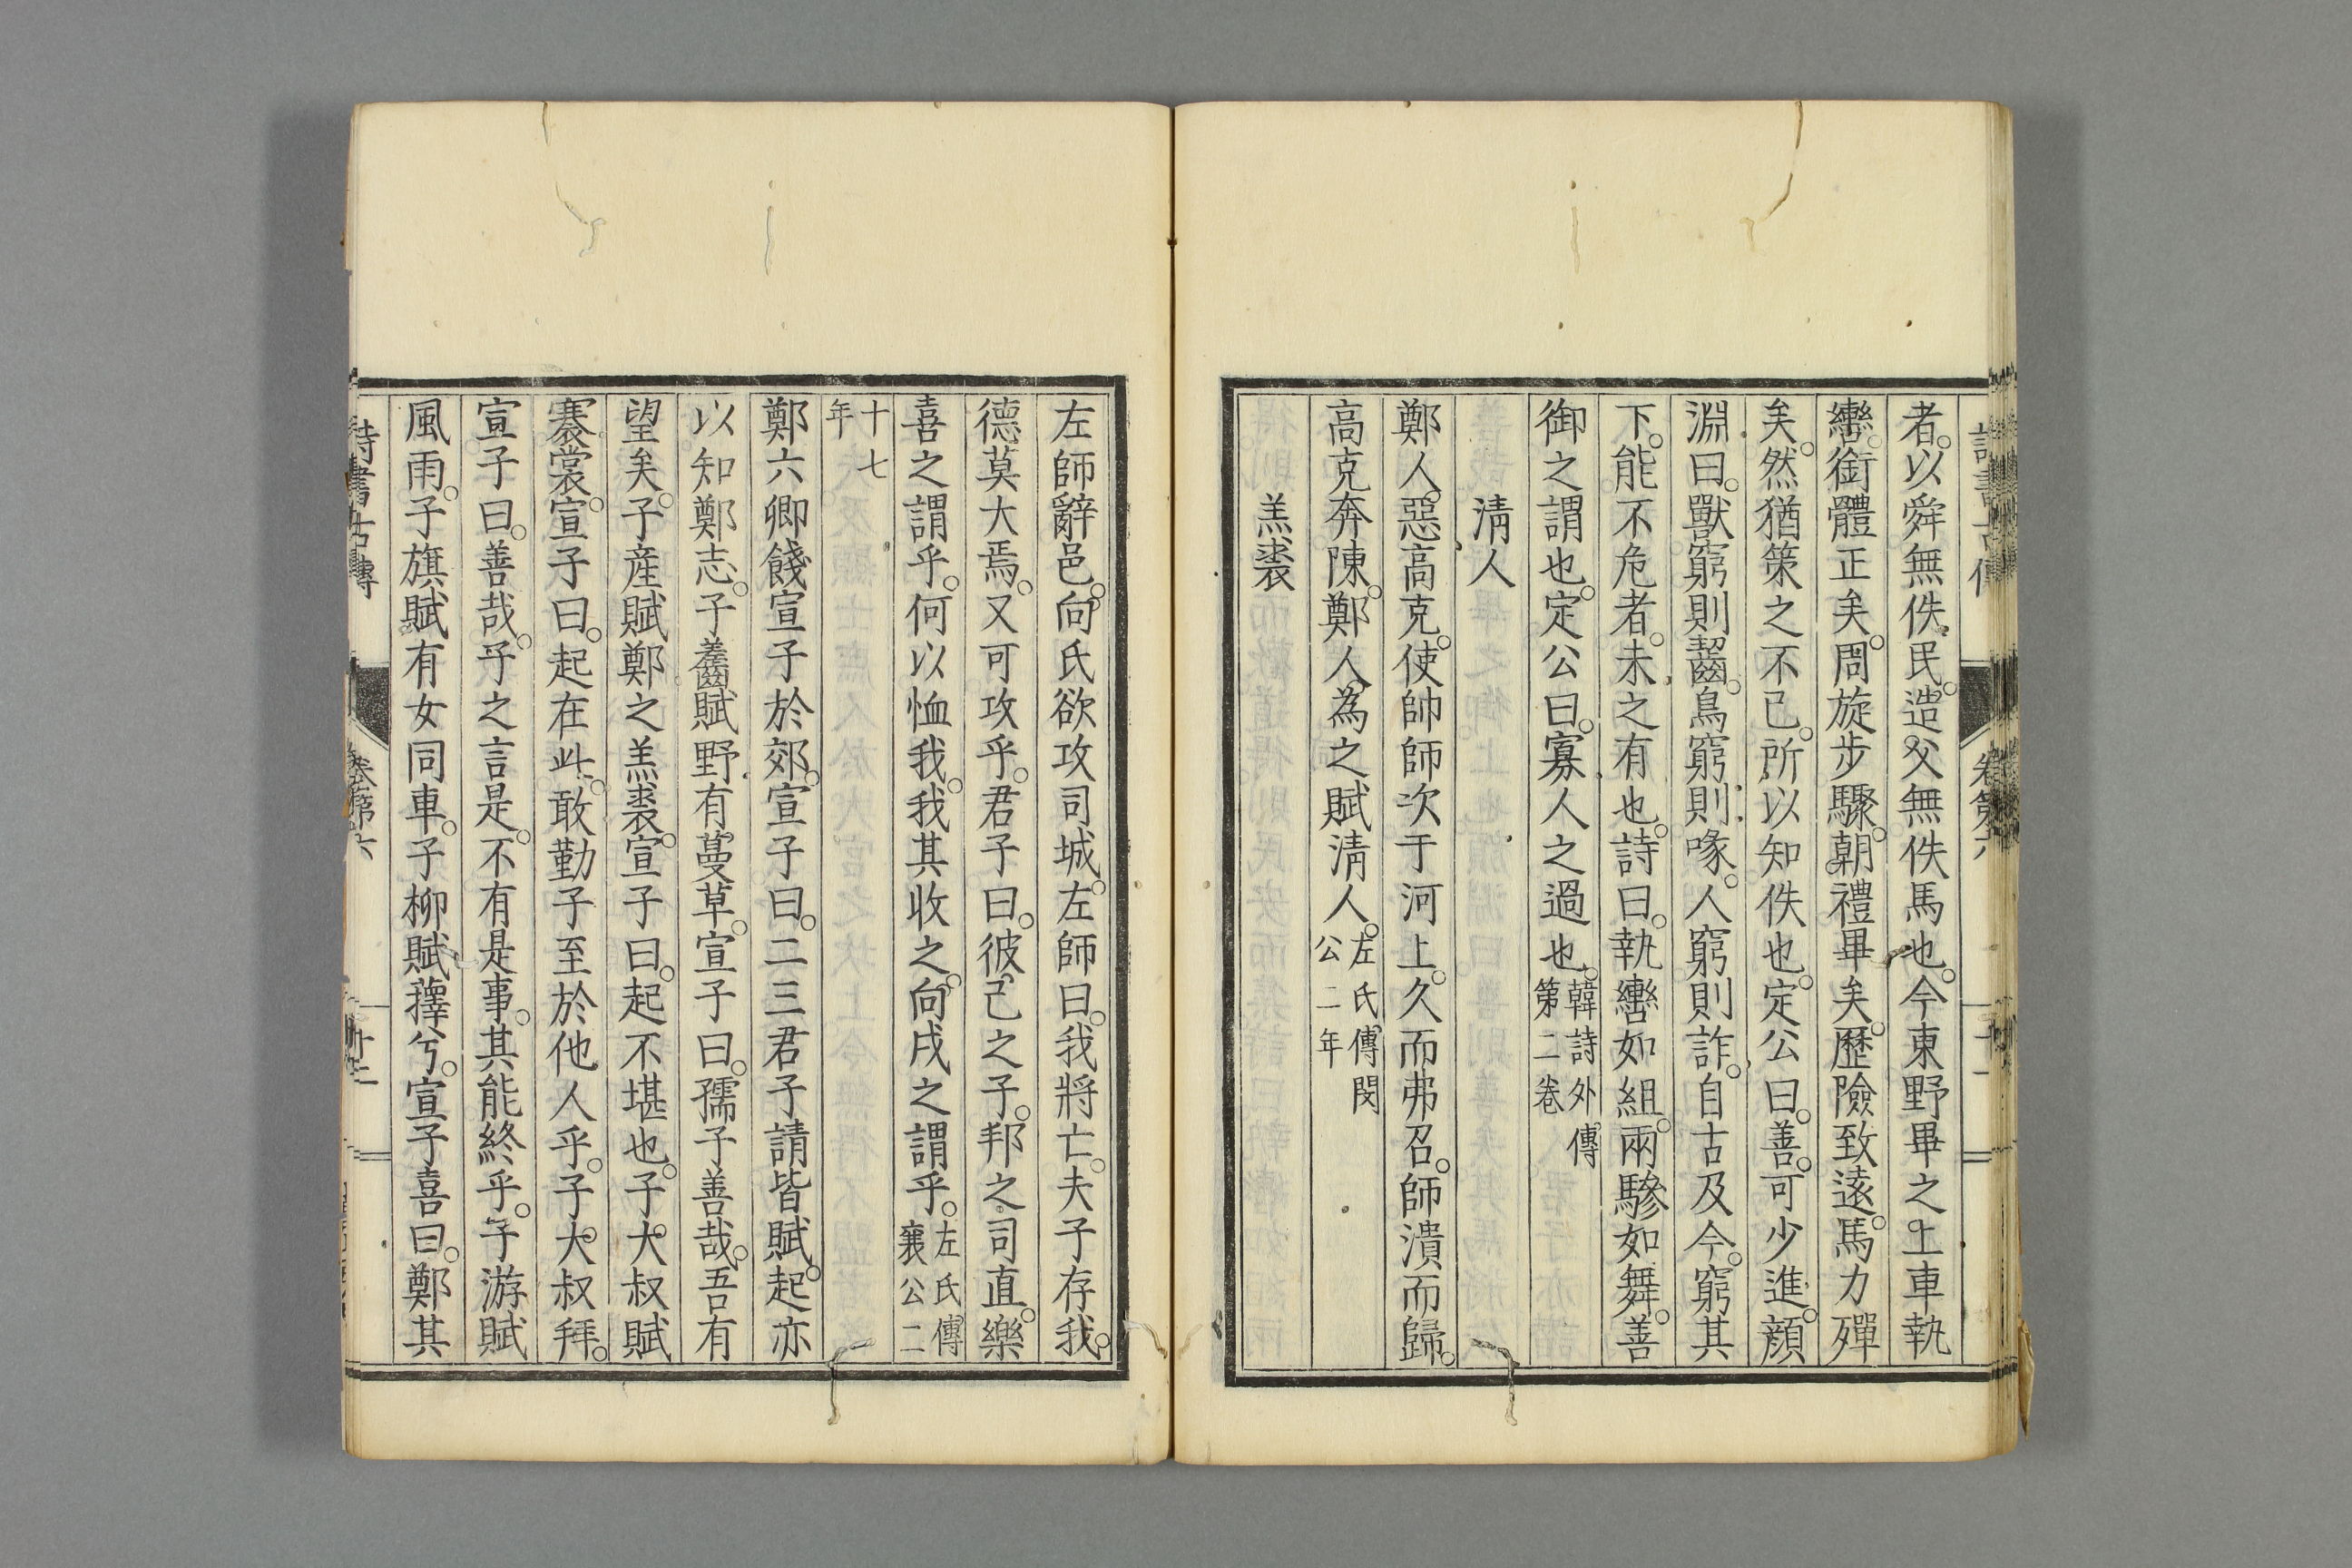 者。以舜無佚民。造父無佚馬也。今東野畢之上車執
轡。銜體正矣。周旋步驟。朝禮畢矣。歷險致遠。馬力殫
矣。然猶策之不已。所以知佚也。定公曰。善。可少進。顏
淵曰。獸窮則齧。鳥窮則喙。人窮則詐。自古及今。窮其
下。能不危者。未之有也。詩曰。執轡如組。兩驂如舞。善
御之謂也。定公曰。寡人之過也。韓詩外傳
第二卷
清人
鄭人惡高克。使帥師次于河上。久而弗召。師潰而歸。
高克奔陳。鄭人為之賦清人。左氏傳閔
公二年
羔裘
左師辭邑。向氏欲攻司城。左師曰。我將亡。夫子存我。
德莫大焉。又可攻乎。君子曰。彼己之子。邦之司直。樂
喜之謂乎。何以恤我。我其收之。向戌之謂乎。左氏傳
襄公二
十七
年
鄭六卿餞宣子於郊。宣子曰。二三君子請皆賦。起亦
以知鄭志。子齹賦野有蔓草。宣子曰。孺子善哉。吾有
望矣。子産賦鄭之羔裘。宣子曰。起不堪也。子大叔賦
褰裳。宣子曰。起在此。敢勤子至於他人乎。子大叔拜。
宣子曰。善哉。子之言是。不有是事。其能終乎。子游賦
風雨。子旗賦有女同車。子柳賦蘀兮。宣子喜曰。鄭其
詩書古傳
卷第六